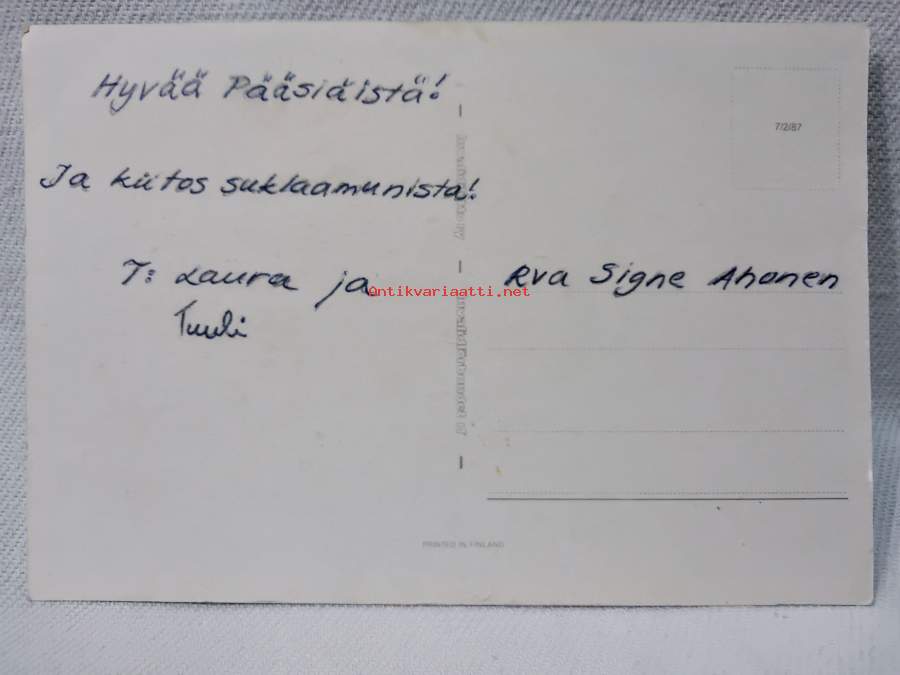 Hyvää Pääsiäistä!
Ja kiitos suklaamunista!
T: Laura ja
Tuuli
7/2/87
Rva Signe Ahonen
Antikvariaatti.net
PRINTED IN FINLAND